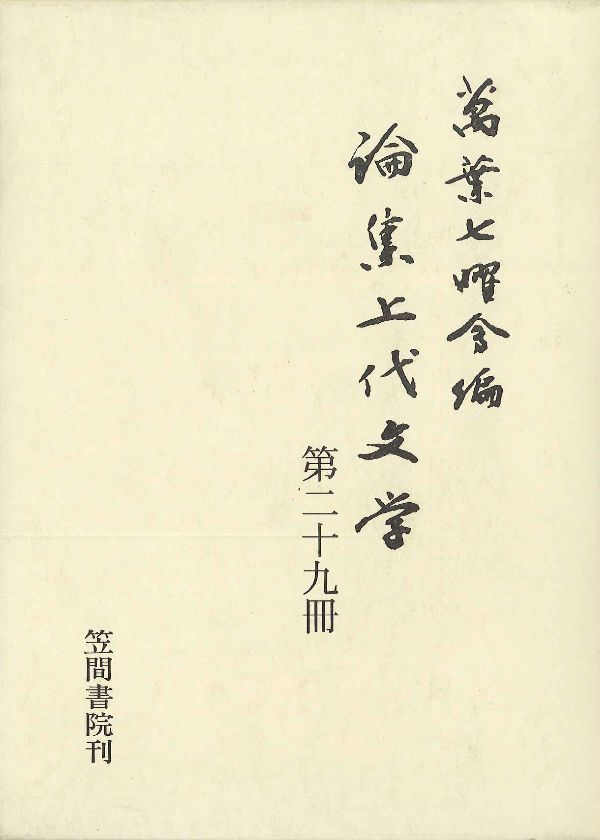 萬葉七曜会編
論集上代文学
第二十九冊
笠間書院刊